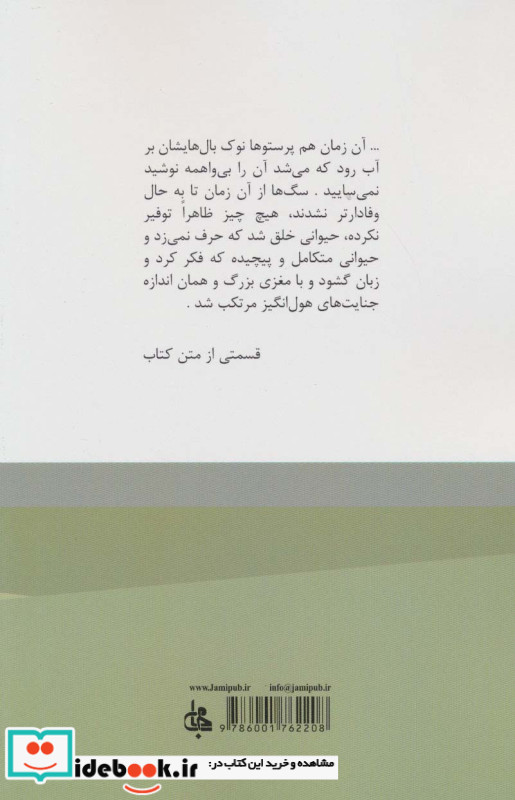 ... آن زمان هم پرستوها نوک بال‌هایشان بر
آب رود که می‌شد آن را بی‌واهمه نوشید
نمی‌سایید . سگ‌ها از آن زمان تا به حال
وفادارتر نشدند، هیچ چیز ظاهراً توفیر
نکرده، حیوانی خلق شد که حرف نمی‌زد و
حیوانی متکامل و پیچیده که فکر کرد و
زبان گشود و با مغزی بزرگ و همان اندازه
جنایت‌های هول‌انگیز مرتکب شد .
قسمتی از متن کتاب
www.Jamipub.ir info@jamipub.ir
جامی
9 786001 762208
idebook.ir
مشاهده و خرید این کتاب در: